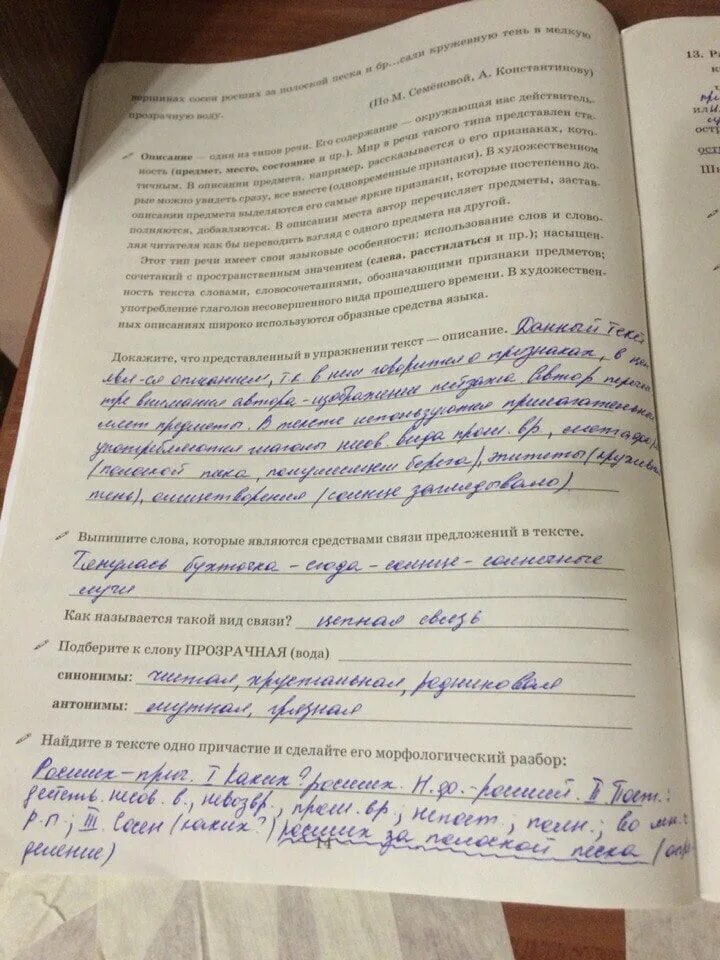 вершинах сосен росших за полоской песка и бр...сали кружевную тень в мелкую
прозрачную воду.
(По М. Семёновой, А. Константинову)
Описание — один из типов речи. Его содержание — окружающая нас действитель-
ность (предмет, место, состояние и пр.). Мир в речи такого типа представлен ста-
тичным. В описании предмета, например, рассказывается о его признаках, кото-
рые можно увидеть сразу, все вместе (одновременные признаки). В художественном
описании предмета выделяются его самые яркие признаки, которые постепенно до-
полняются, добавляются. В описании места автор перечисляет предметы, застав-
ляя читателя как бы переводить взгляд с одного предмета на другой.
Этот тип речи имеет свои языковые особенности: использование слов и слово-
сочетаний с пространственным значением (слева, расстилаться и пр.); насыщен-
ность текста словами, словосочетаниями, обозначающими признаки предметов;
употребление глаголов несовершенного вида прошедшего времени. В художествен-
ных описаниях широко используются образные средства языка.
Докажите, что представленный в упражнении текст — описание. Данный текст
явл-ся описанием, т.к. в нем говорится о признаках, в цен
тре внимания автора - изображение пейзажа. Автор перечис
ляет предметы. В тексте используются прилагательные
употребляются глаголы несов. вида прош. вр.,
(полоской песка, полумесяцем берега), эпитеты (кружевн
тень), олицетворения (солнце заглядывало)
Выпишите слова, которые являются средствами связи предложений в тексте.
Тянулась бухточка - сюда - солнце - солнечные
лучи
Как называется такой вид связи? цепная связь
Подберите к слову ПРОЗРАЧНАЯ (вода)
синонимы: чистая, хрустальная, родниковая
антонимы: мутная, грязная
Найдите в тексте одно причастие и сделайте его морфологический разбор:
Росших - прич. I Каких? росших. Н.ф. - росший. II Пост.:
действ. несов. в., невозвр., прош. вр.; непост.; полн.; во мн. ч
р.п.; III Сосен (каких?) росших за полоской песка (опре
деление)
14
13.